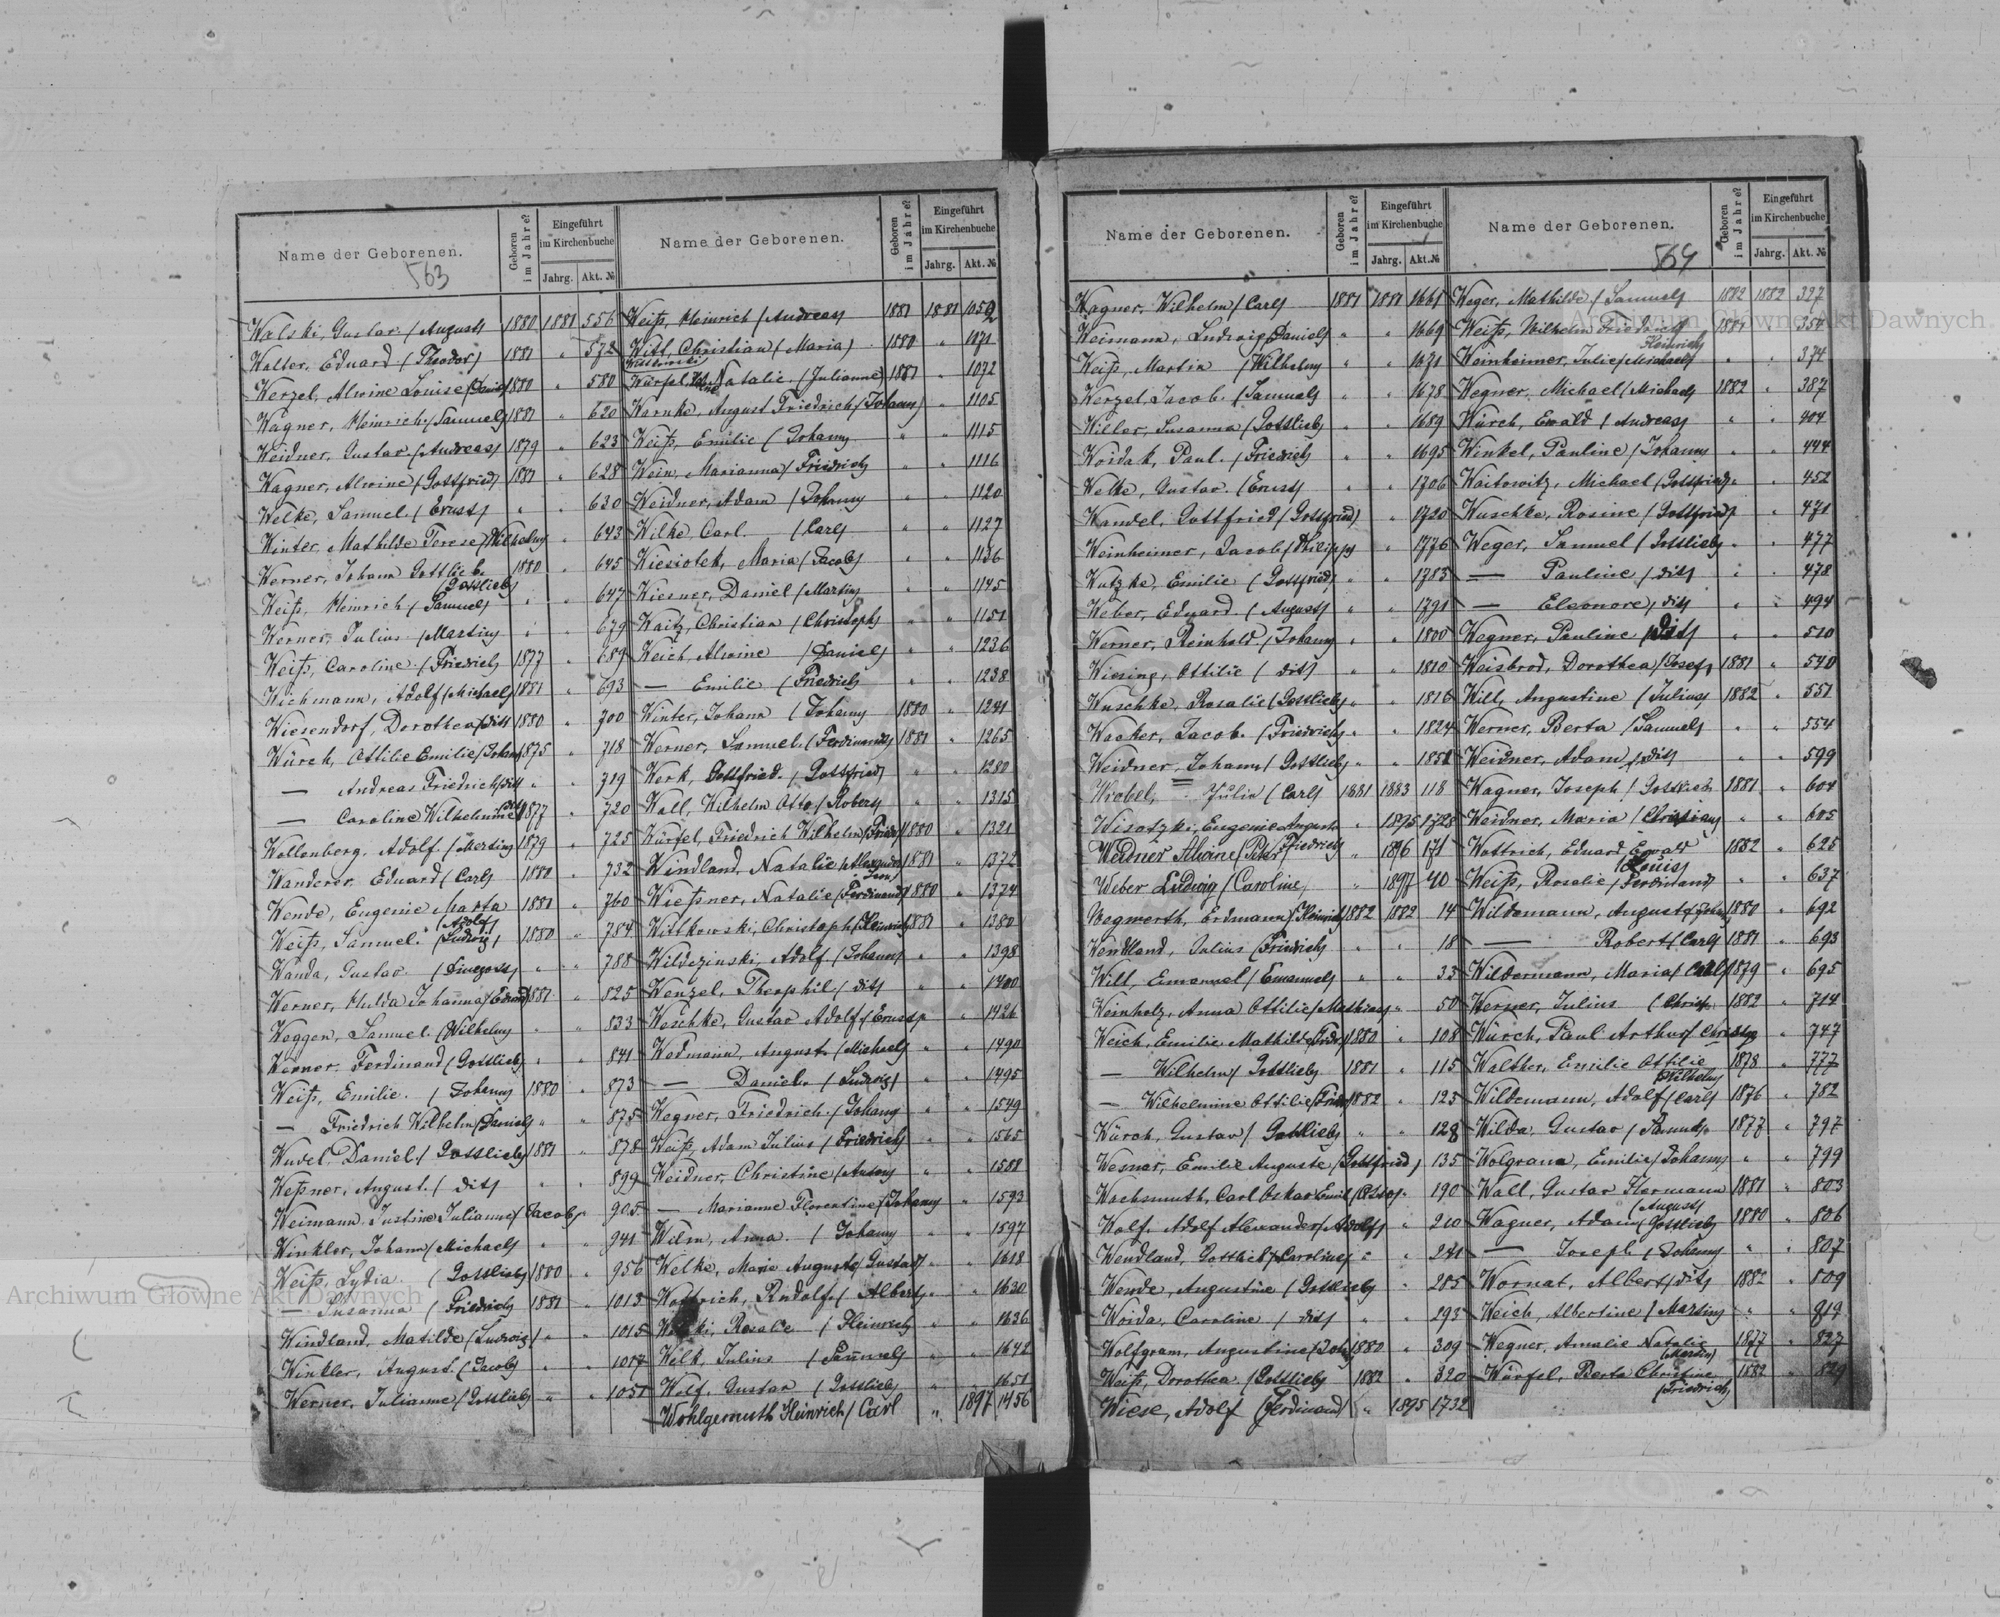 Name der Geborenen.
Geboren im Jahre?
Eingeführt im Kirchenbuche
Jahrg. Akt. №
563
Walski, Gustav / August/ 1880 1881 556
Walter, Eduard (Theodor) 1881 " 572
Werzel, Alwine Louise (Daniel) 1880 " 580
Wagner, Heinrich / Samuel/ 1881 " 620
Weidner, Gustav (Andreas) 1879 " 623
Wagner, Alwine (Gottfried) 1881 " 628
Welke, Samuel / Ernst/ " " 630
Winter, Mathilde Terese (Wilhelm/ " 643
Werner, Johann Gottlieb 1880 " 645
(Gottlieb)
Weiß, Heinrich / Samuel/ " " 647
Werner, Julius / Martin/ " " 679
Weiß, Caroline / Friedrich 1877 " 689
Wichmann, Adolf / Michael/ 1881 " 693
Wiesendorf, Dorothea / dit/ 1880 " 700
Würch, Ottilie Emilie / Johann/ 1875 " 718
— Andreas Friedrich / dit/ " " 719
— Caroline Wilhelmine / dit/ 1877 " 720
Wollenberg, Adolf / Martin/ 1879 " 725
Wanderer, Eduard / Carl/ 1880 " 732
Wende, Eugenie Marta 1881 " 760
(Adolf)
Weiß, Samuel (Ludwig) 1880 " 784
Wanda, Gustav " " 788
Werner, Hulda Johanna / Eduard/ 1881 " 825
Weggen, Samuel (Wilhelm/ " " 833
Werner, Ferdinand (Gottlieb) " " 841
Weiß, Emilie / Johann/ 1880 " 873
— Friedrich Wilhelm (Daniel) " " 875
Wudel, Daniel / Gottlieb/ 1881 " 878
Weßner, August / dit/ " " 899
Weimann, Justine Julianne / Jacob/ " 905
Winkler, Johann / Michael/ " " 941
Weiß, Lydia (Gottlieb) 1880 " 956
— Susanna / Friedrich 1881 " 1013
Windland, Matilde (Ludwig) " " 1015
Winkler, August (Jacob) " " 1017
Werner, Julianne / Gottlieb/ " " 1051
Name der Geborenen.
Geboren im Jahre?
Eingeführt im Kirchenbuche
Jahrg. Akt. №
Weiß, Heinrich / Andreas/ 1881 1881 1052
Witt, Christian (Maria) 1880 " 1071
Würfel, Natalie (Julianne) 1881 " 1072
Warnke, August Friedrich / Johann/ " 1105
Weiß, Emilie / Johann/ " " 1115
Wein, Marianna / Friedrich " " 1116
Weidner, Adam / Johann/ " " 1120
Wilke, Carl / Carl/ " " 1127
Wiesiolek, Maria / Jacob/ " " 1136
Wiesner, Daniel / Martin/ " " 1145
Waitz, Christian / Christoph/ " " 1151
Weich, Alwine / Daniel/ " " 1236
— Emilie / Friedrich " " 1238
Winter, Johann / Johann/ 1880 " 1241
Werner, Samuel (Ferdinand) 1881 " 1265
Werk, Gottfried / Gottfried/ " " 1280
Wall, Wilhelm Otto / Robert/ " " 1315
Würfel, Friedrich Wilhelm / Friedr/ 1880 " 1321
Windland, Natalie 1881 " 1372
Wießner, Natalie (Ferdinand) 1880 " 1374
Wittkowski, Christoph / Heinrich/ 1881 " 1380
Wildezinski, Adolf / Johann/ " " 1398
Wenzel, Theophil / dit/ " " 1400
Weschke, Gustav Adolf / Ernst/ " 1426
Wedmann, August / Michael/ " " 1490
— Daniel / Ludwig/ " " 1495
Wegner, Friedrich / Johann/ " " 1549
Weiß, Adam Julius / Friedrich " " 1565
Weidner, Christine / Anton/ " " 1581
— Marianne Florentine / Johann/ " 1593
Wilm, Anna / Johann/ " " 1597
Welke, Marie Auguste / Gustav/ " " 1618
Wottrich, Rudolf / Albert/ " " 1630
Rosalie / Heinrich/ " " 1636
Wilk, Julius / Samuel/ " " 1642
Wolf, Gustav / Gottlieb/ " " 1651
Wohlgemuth Heinrich / Carl " 1897 1456
Name der Geborenen.
Geboren im Jahre?
Eingeführt im Kirchenbuche
Jahrg. Akt. №
Wagner, Wilhelm / Carl/ 1881 1881 1661
Weimann, Ludwig / Daniel/ " " 1669
Weiß, Martin / Wilhelm/ " " 1671
Werzel, Jacob / Samuel/ " " 1678
Wieler, Susanna / Gottlieb/ " " 1689
Woidak, Paul / Friedrich " " 1695
Welke, Gustav / Ernst/ " " 1706
Wandel, Gottfried / Gottfried/ " 1720
Weinheimer, Jacob / Philipp/ " 1776
Wutzke, Emilie / Gottfried/ " " 1783
Weber, Eduard / August/ " " 1791
Werner, Reinhold / Johann/ " " 1800
Wiesing, Ottilie / dit/ " " 1810
Wuschke, Rosalie / Gottlieb/ " " 1816
Wacker, Jacob / Friedrich/ " " 1824
Weidner, Johann / Gottlieb/ " " 1851
Wrobel, Julia / Carl/ 1881 1883 118
Wisotzki, Eugenie Auguste " 1895 1728
Friedrich
Weidner Alwine / Peter/ " 1896 171
Weber Ludwig / Caroline/ " 1897 40
Wegwerth, Erdmann / Heinrich/ 1882 1882 14
Wendland, Julius / Friedrich " " 18
Will, Emanuel / Emanuel/ " " 33
Weinholz, Anna Ottilie / Mathias/ " 50
Weich, Emilie Mathilde / Friedr/ 1880 " 108
— Wilhelm / Gottlieb/ 1881 " 115
— Wilhelmine Ottilie / Friedr/ 1882 " 123
Würch, Gustav / Gottlieb/ " " 128
Wesner, Emilie Auguste / Gottfried/ 135
Wachsmuth, Carl Oskar Emil / Otto/ " 190
Wolf, Adolf Alexander / Adolf/ " 210
Wendland, Gottlieb / Caroline/ " " 241
Wende, Augustine / Gottlieb/ " 285
Woida, Caroline / dit/ " " 293
Wolfgram, Augustine / Joh/ 1880 " 309
Weiß, Dorothea / Gottlieb/ 1882 " 320
Wiese, Adolf / Ferdinand/ " 1895 1732
Name der Geborenen.
Geboren im Jahre?
Eingeführt im Kirchenbuche
Jahrg. Akt. №
564
Weger, Mathilde / Samuel/ 1882 1882 327
Weiß, Wilhelm Friedrich 1881 " 350
Heinrich
Weinheimer, Julie / Michael/ " " 374
Wegner, Michael / Michael/ 1882 " 387
Würch, Ewald / Andreas/ " " 404
Winkel, Pauline / Johann/ " " 444
Waitowitz, Michael / Gottfried/ " " 452
Wuschke, Rosine / Gottfried/ " 471
Weger, Samuel / Gottlieb/ " " 477
— Pauline / dit/ " " 478
— Eleonore / dit/ " " 494
Wegner, Pauline / dit/ " " 510
Waisbrod, Dorothea / Josef/ 1881 " 540
Will, Augustine / Julius/ 1882 " 551
Werner, Berta / Samuel/ " " 554
Weidner, Adam / dit/ " " 599
Wagner, Joseph / Gottlieb 1881 " 604
Weidner, Maria / Christian/ " " 605
Wottrich, Eduard Ewald 1882 " 625
(Louis)
Weiß, Rosalie / Ferdinand/ " " 637
Wildemann, August / Joh/ 1880 " 692
— Robert / Carl/ 1881 " 693
Wildermann, Maria / Carl/ 1879 " 695
Werner, Julius / Christ/ 1882 " 714
Würch, Paul Arthur / " 747
Walther, Emilie Ottilie 1878 " 777
(Wilhelm)
Wildemann, Adolf / Carl/ 1876 " 782
Wilda, Gustav / Samuel/ 1877 " 797
Wolgram, Emilie / Johann/ " " 799
Wall, Gustav Hermann 1881 " 803
(August)
Wagner, Adam / Gottlieb/ 1880 " 806
— Joseph / Johann/ " " 807
Wornat, Albert / dit/ 1882 " 809
Weich, Albertine / Martin/ " " 819
Wegner, Amalie Natalie 1877 " 827
(Martin)
Würfel, Berta Christine 1882 " 829
(Friedrich)
Archiwum Główne Akt Dawnych
Archiwum Główne Akt Dawnych